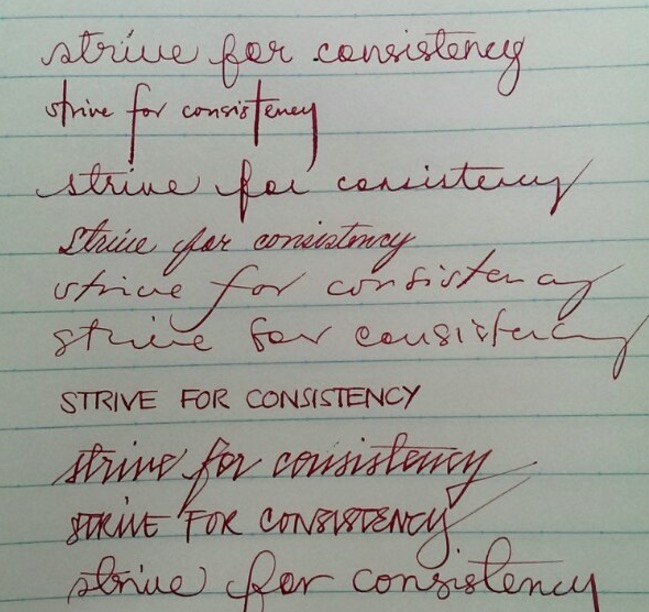 strive for consistency
strive for consistency
strive for consistency
Strive for consistency
strive for consistency
strive for consistency
STRIVE FOR CONSISTENCY
strive for consistency
STRIVE FOR CONSISTENCY
strive for consistency